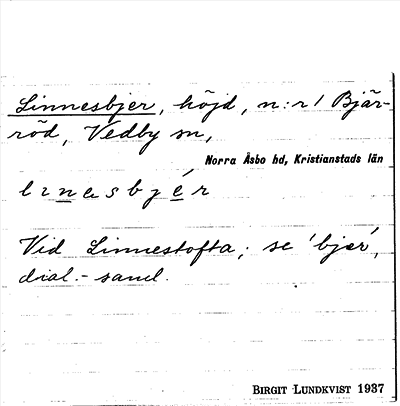 Linnesbjer, höjd, n:r 1 Bjär-
röd, Vedby sn,
Norra Åsbo hd, Kristianstads län
linesbjér
Vid Linnestofta; se 'bjer',
dial.-saml.
BIRGIT LUNDKVIST 1937